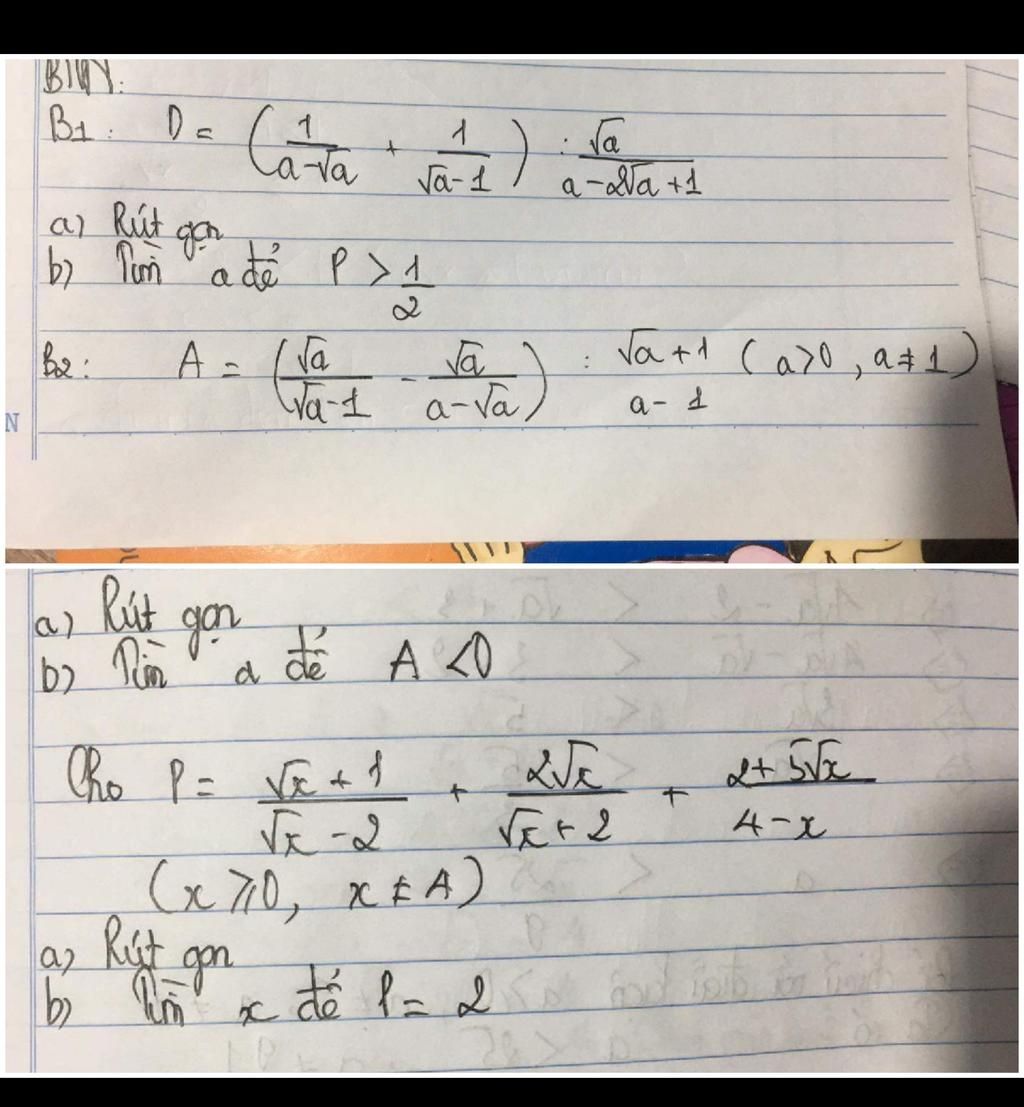 BTVN:
B1: D = (1/(a-√a) + 1/(√a-1)) : √a/(a-2√a+1)
a) Rút gọn
b) Tìm a để P > 1/2
B2: A = (√a/(√a-1) - √a/(a-√a)) : √a+1 / a-1 (a>0, a≠1)
N
a) Rút gọn
b) Tìm a để A <0
Cho P = (√x+1)/(√x-2) + 2√x/(√x+2) + (2+5√x)/(4-x)
(x ≥ 0, x ≠ 4)
a) Rút gọn
b) Tìm x để P = 2